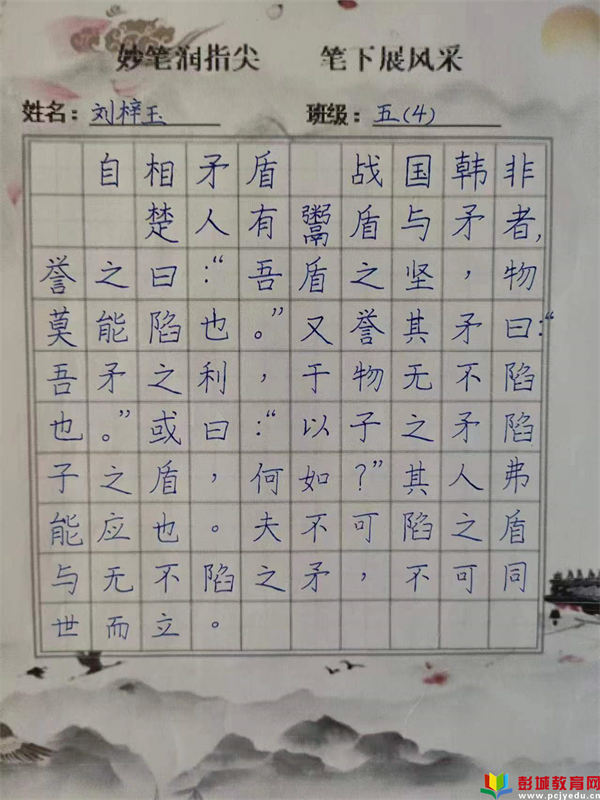 妙笔润指尖 笔下展风采
姓名：刘梓玉 班级：五(4)
自相矛盾 战国韩非
楚人有鬻盾与矛者，
誉之曰：“吾盾之坚，物
莫能陷也。”又誉其矛曰：“
吾矛之利，于物无不陷
也。”或曰：“以子之矛陷
子之盾，何如？”其人弗
能应也。夫不可陷之盾
与无不陷之矛，不可同
世而立。
彭城教育网
www.pcjyedu.cn